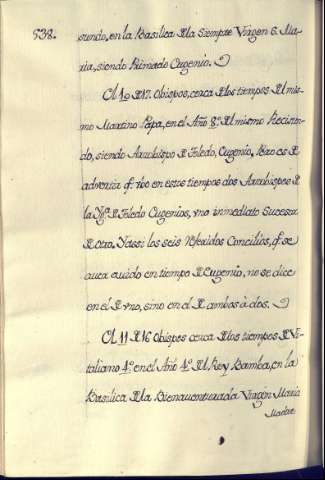 538.
sundo, en la Basilica D la Siempre Virgen S. Ma-
ria, siendo Primado Eugenio.
Ol 10 D 17. Obispos, cerca D los tiempos D l mis-
mo Martino Papa, en el Año 8.º D l mismo Recisin-
do, siendo Arzobispo D Toledo, Eugenio, Pero es D
advertir q̃ vbo en estos tiempos dos Arzobispos D
la Ygl.ª D Toledo Eugenios, vno inmediato Sucesor
D otro. Y assi los seis referidos Concilios, q̃ se
auer auido en tiempo D Eugenio, no se dice
en el D vno, sino en el D ambos à dos.
Ol 11 D 16 Obispos cerca D los tiempos D Vi-
taliano 4.º en el Año 4.º D l Rey Bamba, en la
Basilica D la Bienauenturada Virgen Maria
Madre